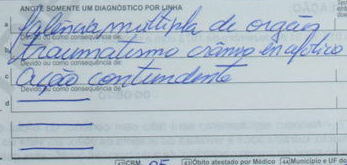 ANOTE SOMENTE UM DIAGNÓSTICO POR LINHA
a Falência multipla de orgãos
Devido ou como consequência de:
b traumatismo crânio encefálico
Devido ou como consequência de:
c Ação contundente
Devido ou como consequência de:
d
CRM 05 Óbito atestado por Médico Município e UF do